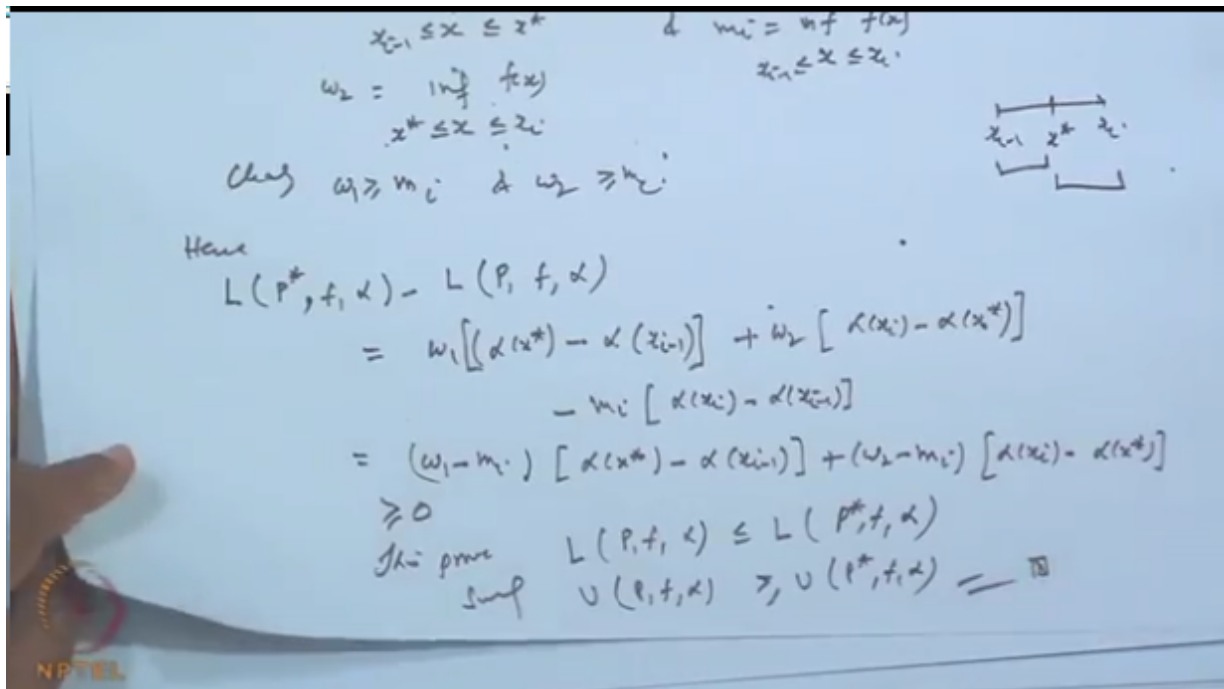 x_{i-1} ≤ x ≤ x* & m_i = inf f(x)
x_{i-1} ≤ x ≤ x_i
ω_2 = inf f(x)
x* ≤ x ≤ x_i
x_{i-1} x* x_i
ω_1 ≥ m_i & ω_2 ≥ m_i
Hence
L(P*, f, α) - L(P, f, α)
= ω_1[(α(x*) - α(x_{i-1})] + ω_2 [α(x_i) - α(x*)]
- m_i [α(x_i) - α(x_{i-1})]
= (ω_1 - m_i) [α(x*) - α(x_{i-1})] + (ω_2 - m_i) [α(x_i) - α(x*)]
≥ 0
This prove L(P, f, α) ≤ L(P*, f, α)
U(P, f, α) ≥ U(P*, f, α)
NPTEL